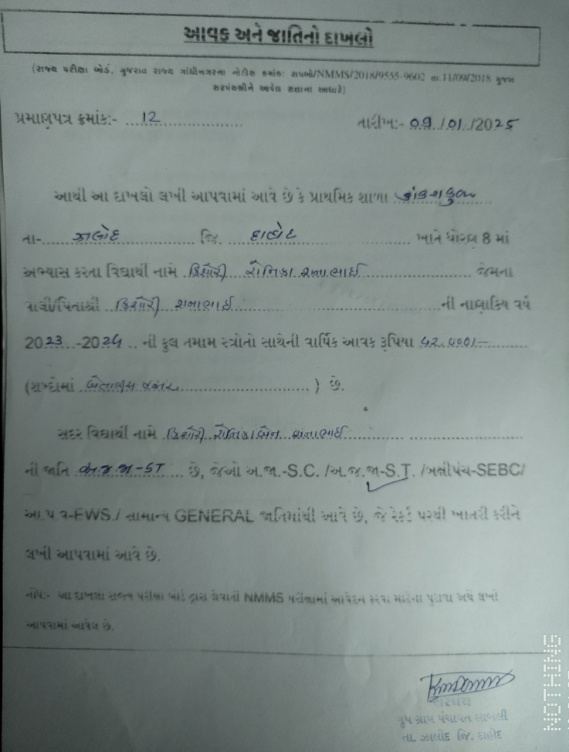 આવક અને જાતિનો દાખલો
(રાજ્ય પરીક્ષા બોર્ડ, ગુજરાત રાજ્ય ગાંધીનગરના નોટીસ ક્રમાંક: રાપબો/NMMS/2018/9555-9602 તા.11/09/2018 મુજબ
સરપંચશ્રીને આપેલ સત્તાના આધારે)
પ્રમાણપત્ર ક્રમાંક:- 12 તારીખ:- 09/01/2025
આથી આ દાખલો લખી આપવામાં આવે છે કે પ્રાથમિક શાળા
તા- ઝાલોદ જિ. દાહોદ ખાતે ધોરણ 8 માં
અભ્યાસ કરતા વિદ્યાર્થી નામે કિશોરી રોનિકા શનાભાઈ જેમના
વાલી/પિતાશ્રી કિશોરી શનાભાઈ ની નાણાકિય વર્ષ
2023-2024 ની કુલ તમામ સ્ત્રોતો સાથેની વાર્ષિક આવક રૂપિયા ૪૨,૦૦૦/-
(શબ્દોમાં બેતાળીસ હજાર) છે.
સદર વિદ્યાર્થી નામે કિશોરી રોનિકાબેન શનાભાઈ
ની જાતિ અ.જ.જા-ST છે, જેઓ અ.જા.-S.C. /અ.જ.જા-S.T. /બક્ષીપંચ-SEBC/
આ.પ.વ-EWS./ સામાન્ય GENERAL જાતિમાંથી આવે છે, જે રેકર્ડ પરથી ખાતરી કરીને
લખી આપવામાં આવે છે.
નોંધ:- આ દાખલો રાજ્ય પરીક્ષા બોર્ડ દ્વારા લેવાતી NMMS પરીક્ષામાં આવેદન કરવા માટેના પુરાવા અર્થે લખી
આપવામાં આવેલ છે.
સરપંચ
ગ્રામ પંચાયત
તા. ઝાલોદ જિ. દાહોદ
NOTHING